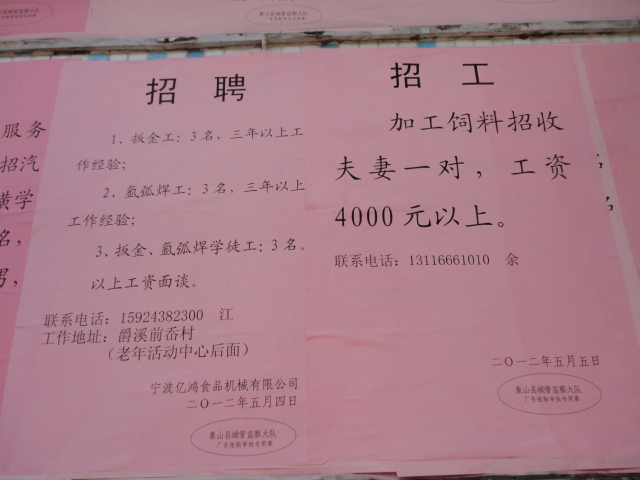 服务
招汽
横学
名，
男，
招聘
1、扳金工：3名，三年以上工
作经验；
2、氩弧焊工：3名，三年以上
工作经验；
3、扳金、氩弧焊学徒工：3名。
以上工资面谈。
联系电话：15924382300 江
工作地址：爵溪前岙村
（老年活动中心后面）
宁波亿鸿食品机械有限公司
二〇一二年五月四日
象山县城管监察大队
广告张贴审批专用章
招工
加工饲料招收
夫妻一对，工资
4000元以上。
联系电话：13116661010 余
二〇一二年五月五日
象山县城管监察大队
广告张贴审批专用章
名